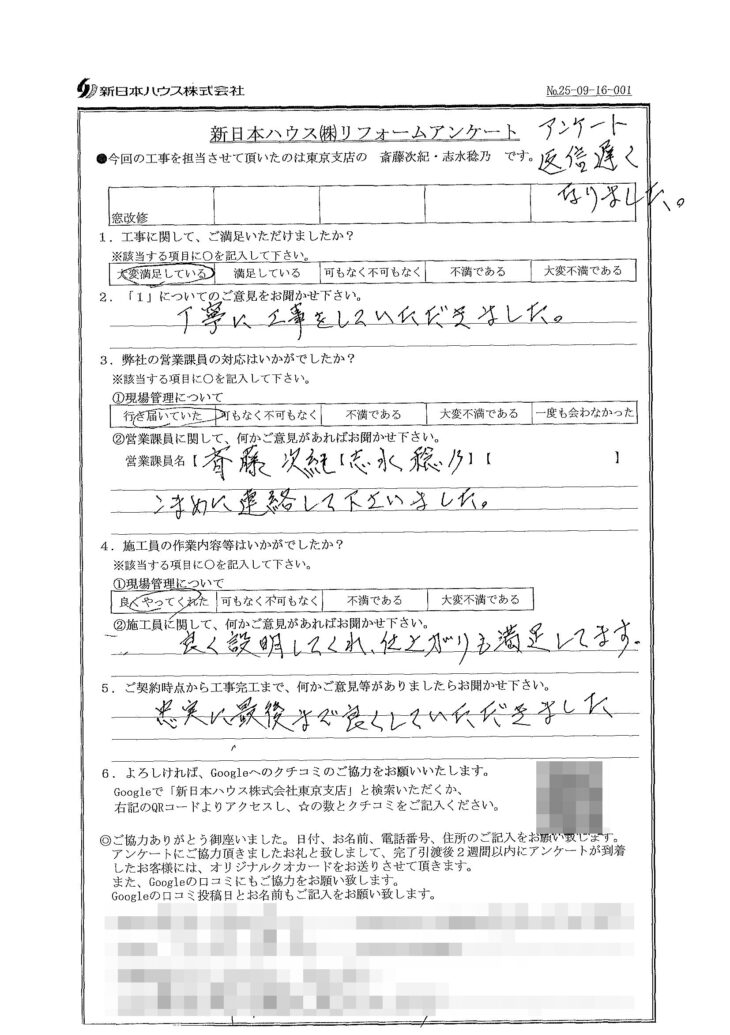 新日本ハウス株式会社
№25-09-16-001
新日本ハウス㈱リフォームアンケート
アンケート
返信遅く
なりました。
●今回の工事を担当させて頂いたのは東京支店の 斎藤次紀・志水稔乃 です。
窓改修
1．工事に関して、ご満足いただけましたか？
※該当する項目に○を記入して下さい。
大変満足している 満足している 可もなく不可もなく 不満である 大変不満である
2．「1」についてのご意見をお聞かせ下さい。
丁寧に工事をしていただきました。
3．弊社の営業課員の対応はいかがでしたか？
※該当する項目に○を記入して下さい。
①現場管理について
行き届いていた 可もなく不可もなく 不満である 大変不満である 一度も会わなかった
②営業課員に関して、何かご意見があればお聞かせ下さい。
営業課員名【 斉藤 次紀【志水 稔乃】【 】
こまめに連絡して下さいました。
4．施工員の作業内容等はいかがでしたか？
※該当する項目に○を記入して下さい。
①現場管理について
良くやってくれた 可もなく不可もなく 不満である 大変不満である
②施工員に関して、何かご意見があればお聞かせ下さい。
良く説明してくれ、仕上がりも満足してます。
5．ご契約時点から工事完工まで、何かご意見等がありましたらお聞かせ下さい。
忠実に最後まで良くしていただきました
6．よろしければ、Googleへのクチコミのご協力をお願いいたします。
Googleで「新日本ハウス株式会社東京支店」と検索いただくか、
右記のQRコードよりアクセスし、☆の数とクチコミをご記入ください。
◎ご協力ありがとう御座いました。日付、お名前、電話番号、住所のご記入をお願い致します。
アンケートにご協力頂きましたお礼と致しまして、完了引渡後２週間以内にアンケートが到着
したお客様には、オリジナルクオカードをお送りさせて頂きます。
また、Googleの口コミにもご協力をお願い致します。
Googleの口コミ投稿日とお名前もご記入をお願い致します。